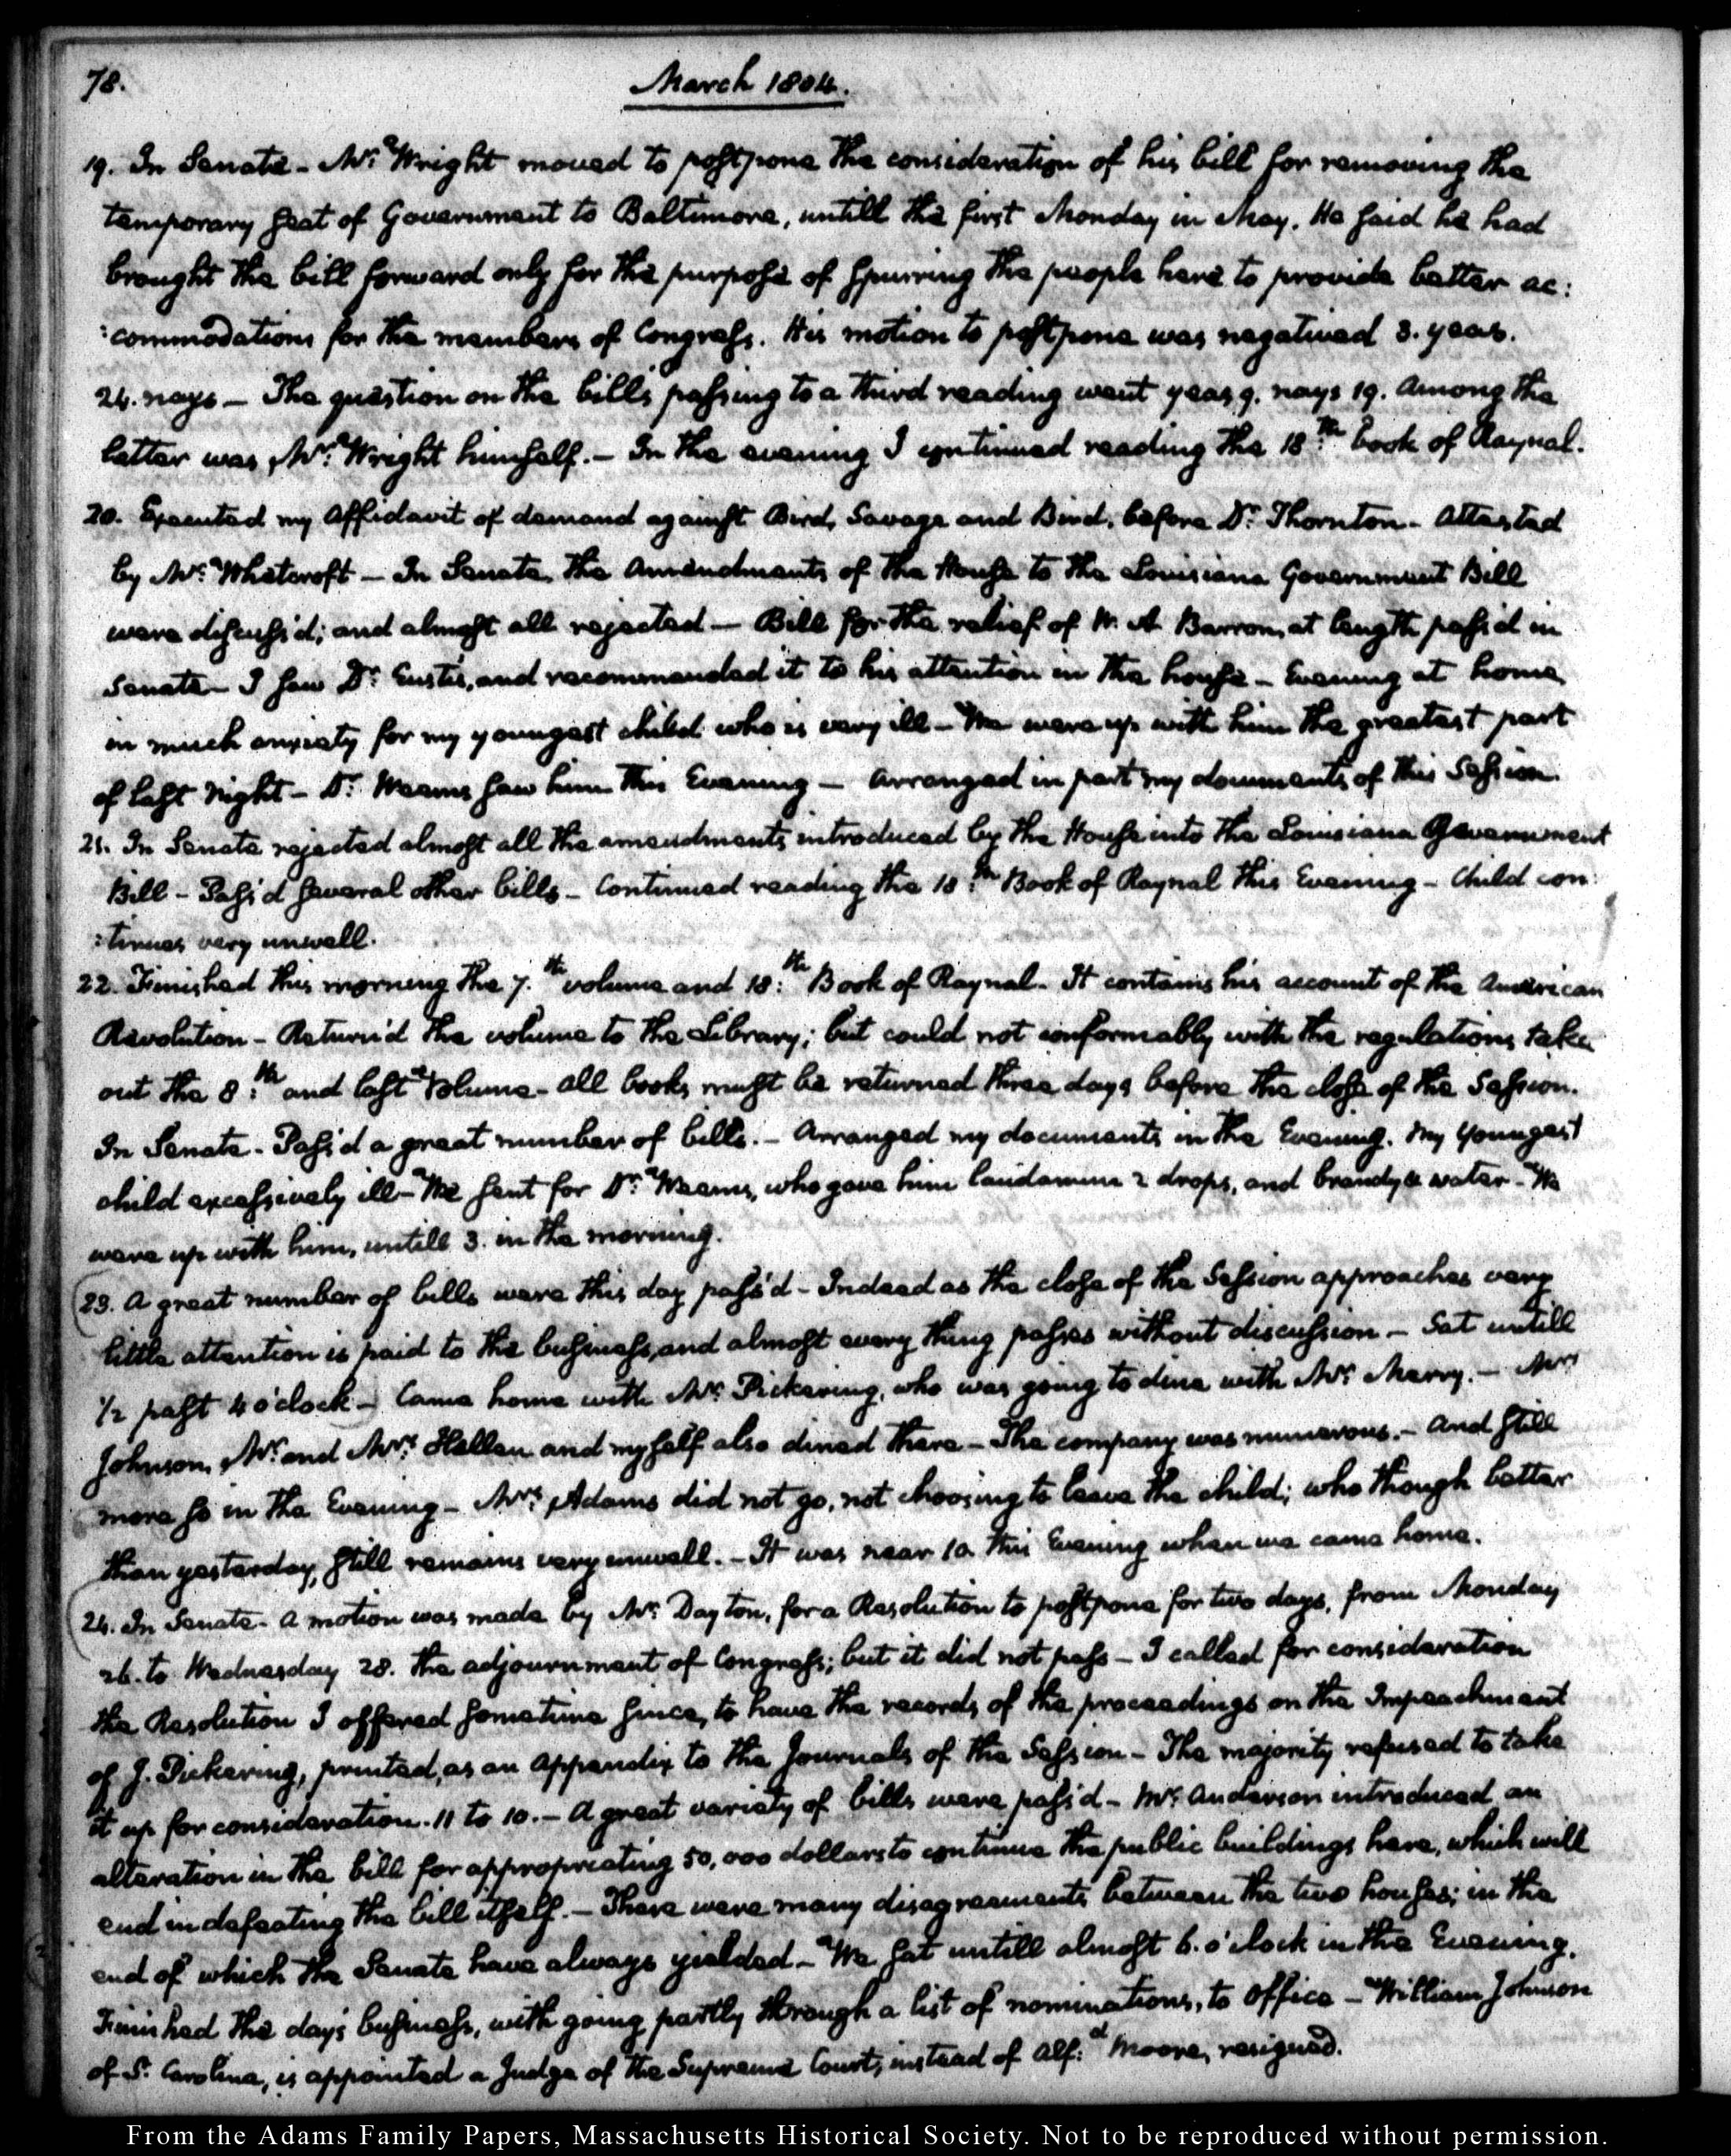 78.
March 1804.
19. In Senate - Mr. Wright moved to postpone the consideration of his bill for removing the
temporary seat of Government to Baltimore, untill the first Monday in May. He said he had
brought the bill forward only for the purpose of spurring the people here to provide better ac:
:commodations for the members of Congress. His motion to postpone was negatived 3. yeas.
24. nays — The question on the bill's passing to a third reading went yeas 9. nays 19. Among the
latter was, Mr. Wright himself. - In the evening I continued reading the 18.th book of Raynal.
20. Executed my Affidavit of demand against Bird, Savage and Bird, before Dr. Thornton - Attested
by Mr. Whetcroft — In Senate, the Amendments of the House to the Louisiana Government Bill
were discuss'd; and almost all rejected — Bill for the relief of W. A. Barron, at length pass'd in
Senate - I saw Dr. Eustis, and recommended it to his attention in the house - Evening at home,
in much anxiety for my youngest child who is very ill - We were up with him the greatest part
of last Night - Dr. Weems saw him this Evening — Arranged in part my documents of this Session.
21. In Senate rejected almost all the amendments introduced by the House into the Louisiana Government
Bill - Pass'd several other bills - Continued reading the 18.th Book of Raynal this Evening - Child con:
:tinues very unwell.
22. Finished this morning the 7.th volume and 18.th Book of Raynal - It contains his account of the American
Revolution - Return'd the volume to the Library; but could not conformably with the regulations take
out the 8.th and last Volume - All books must be returned three days before the close of the Session.
In Senate - Pass'd a great number of bills. - Arranged my documents in the Evening. My Youngest
child excessively ill - We sent for Dr. Weems, who gave him laudanum 2 drops, and brandy & water - We
were up with him, untill 3. in the morning.
23. A great number of bills were this day pass'd - Indeed as the close of the Session approaches very
little attention is paid to the business, and almost every thing passes without discussion - Sat untill
1/2 past 4 o'clock - Came home with Mr. Pickering, who was going to dine with Mr. Merry. - Mrs.
Johnson, Mr. and Mrs. Hellen and myself also dined there - The company was numerous. - And still
more so in the Evening - Mrs. Adams did not go, not choosing to leave the child; who though better
than yesterday, still remains very unwell. - It was near 10. this Evening when we came home.
24. In Senate - A motion was made by Mr. Dayton, for a Resolution to postpone for two days, from Monday
26. to Wednesday 28. the adjournment of Congress; but it did not pass - I called for consideration
the Resolution I offered sometime since, to have the records of the proceedings on the Impeachment
of J. Pickering, printed, as an Appendix to the Journals of the Session - The majority refused to take
it up for consideration. 11 to 10. - A great variety of bills were pass'd - Mr. Anderson introduced an
alteration in the bill for appropriating 50,000 dollars to continue the public buildings here, which will
end in defeating the bill itself. - There were many disagreements between the two houses; in the
end of which the Senate have always yielded - We sat untill almost 6. o'clock in the Evening.
Finished the day's business, with going partly through a list of nominations, to Office - William Johnson
of S. Carolina, is appointed a Judge of the Supreme Court, instead of Alf:d Moore, resigned.
From the Adams Family Papers, Massachusetts Historical Society. Not to be reproduced without permission.